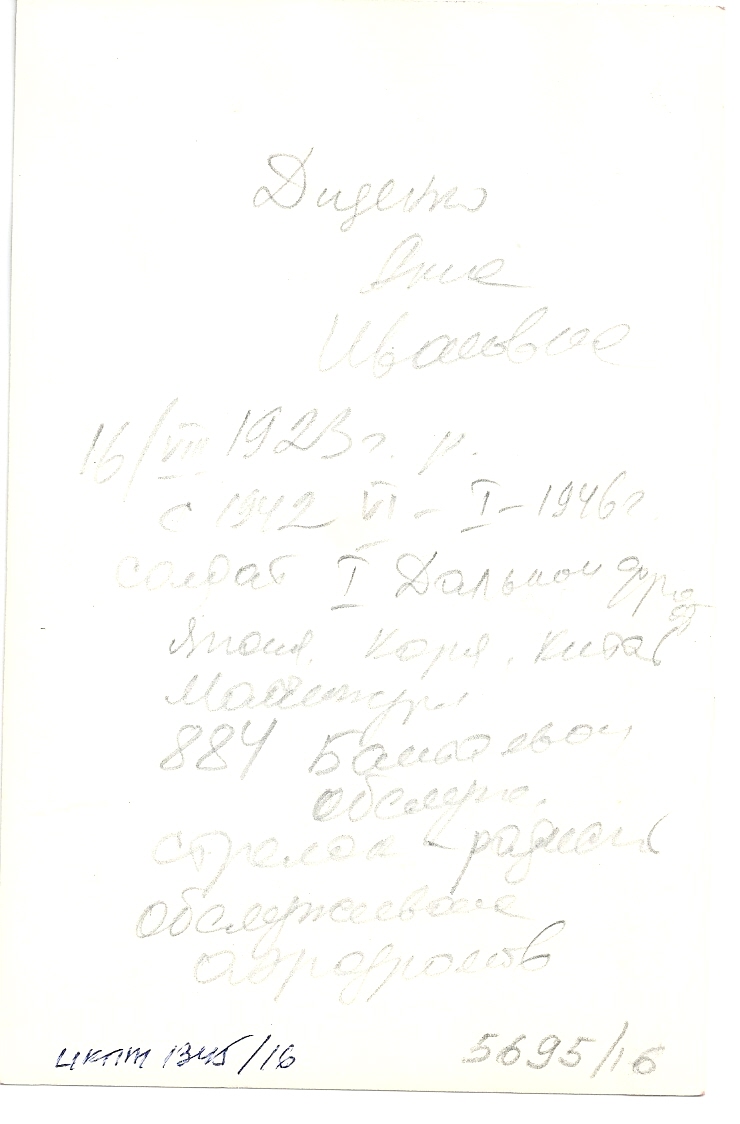 Диденко
Анна
Ивановна
16/VIII 1923 г. р.
с 1942 VI - I - 1946 г
солдат I Дальнон фро
Япония. Корея. Китай
884 Баталион
обслуж.
стрелок - радист
обслуживание
аэродромов
5695/16